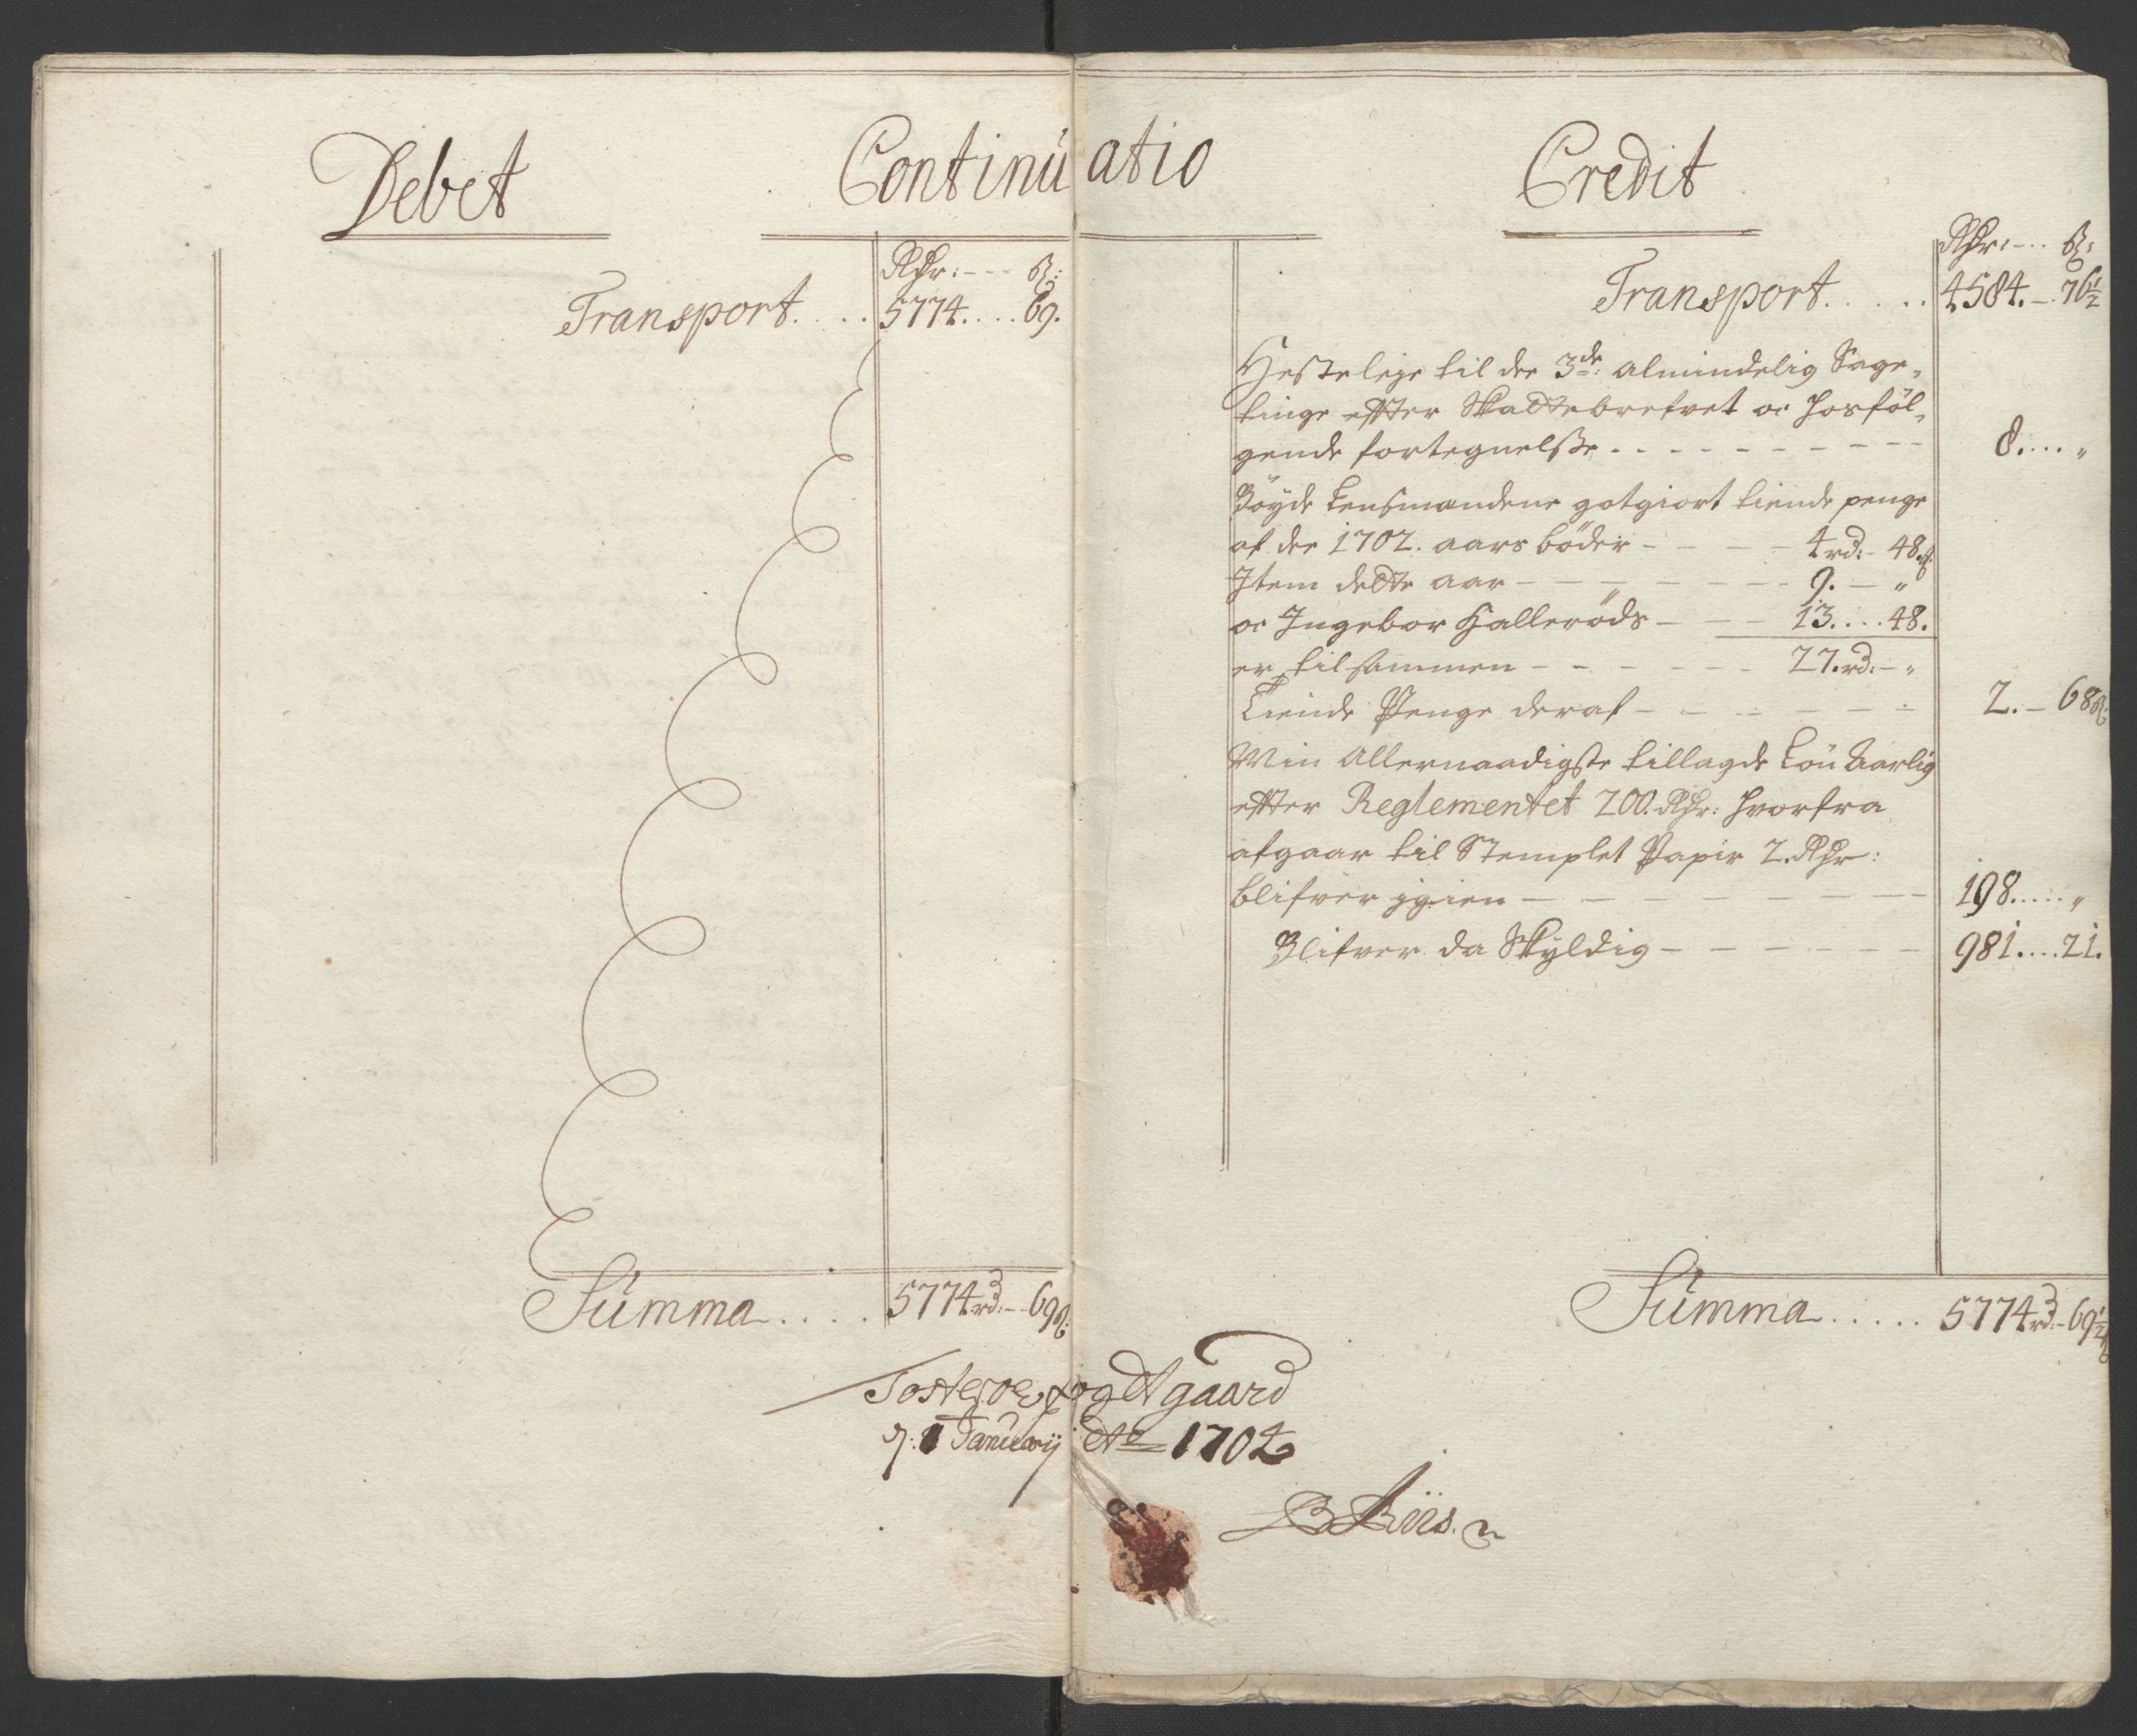 Debet
Continuatio
Credit
Rdr: ß:
Transport 5774 69.
Summa 5774 rd: 69 ß:
Rdr: ß:
Transport 4584. 76½
Hesteleje til de 3de: almindelig Sage-
tinge efter Skattebrefvet oc hosföl-
gende fortegnelsse 8. "
Böyde Lensmandene gotgiort tiende penge
af de 1702. aars böder 4 rd: 48 ß:
Item dette aar 9. "
oc Ingebor Halleröds 13 48.
er tilsammen 27. rd: "
Tiende Penge deraf 2. 68 ß:
Min Allernaadigste tillagde Lön Aarlig
efter Reglementet 200. Rdr: hvorfra
afgaar til Stemplet Papir 2. Rdr:
blifver igien 198. "
Blifver da Skyldig 981 21.
Summa 5774 rd: 69½ ß
Fogdtgaard
d: 1 January Ao 1704